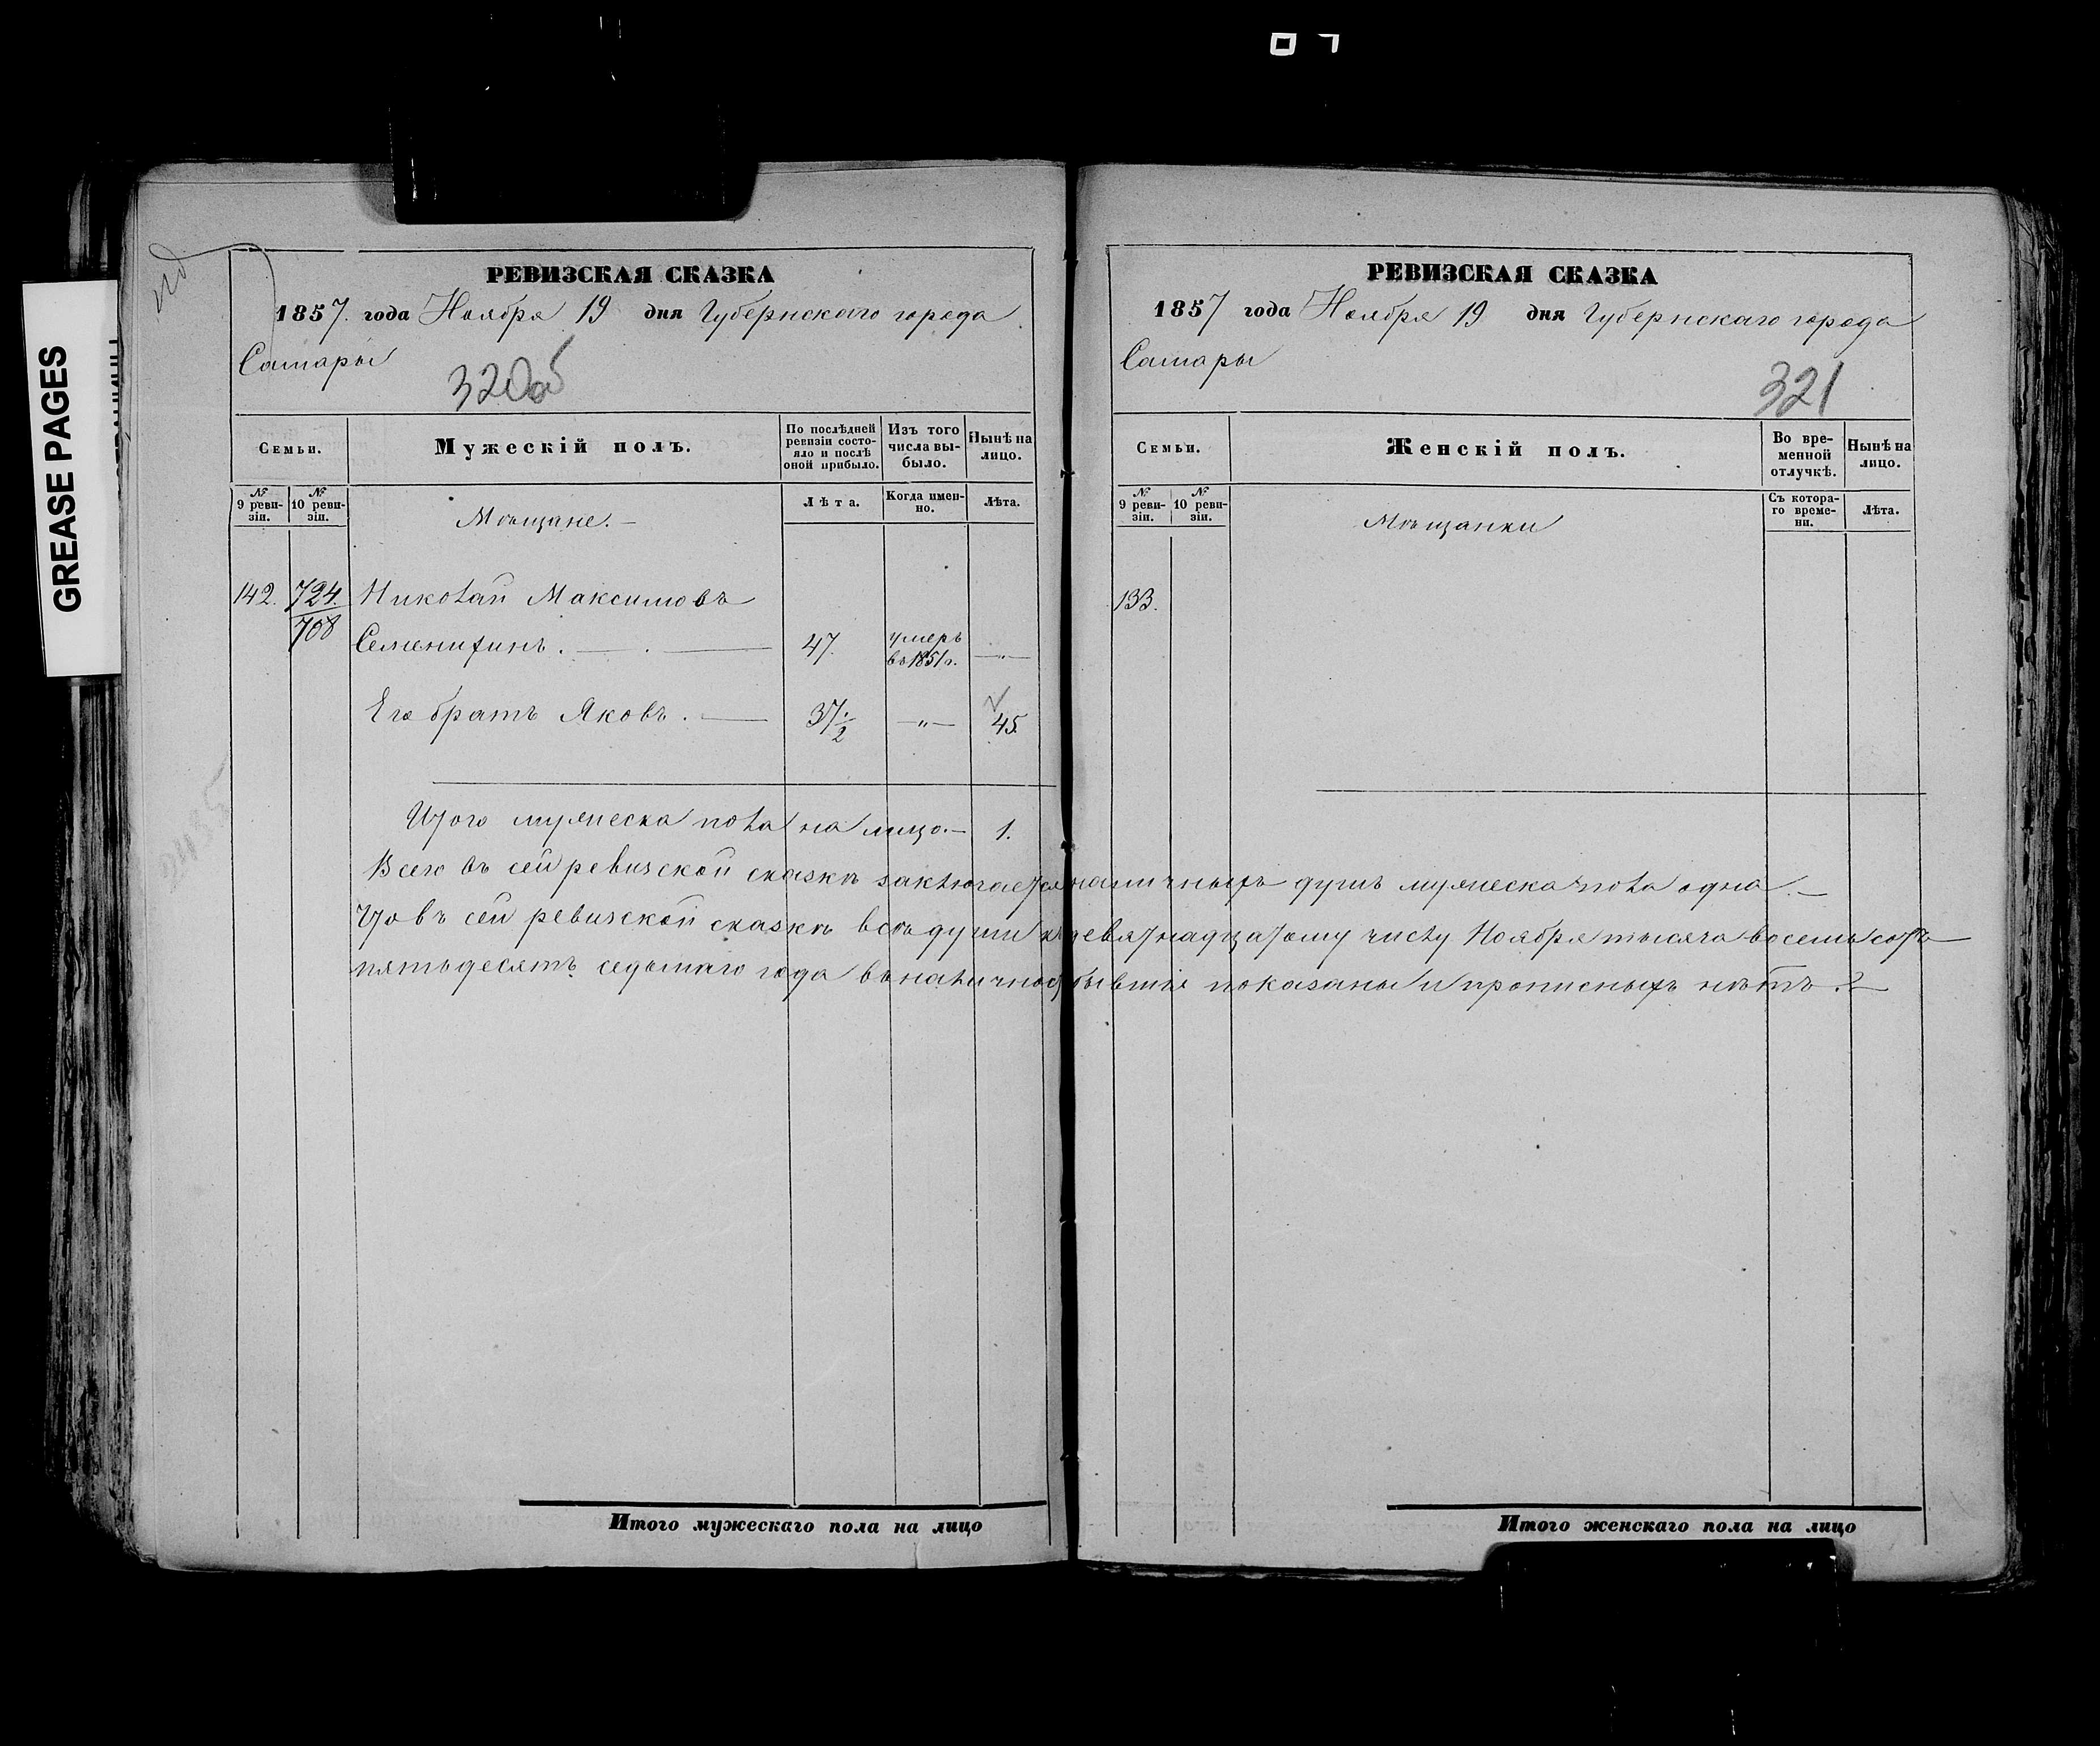 GREASE PAGES
РЕВИЗСКАЯ СКАЗКА
1857. года Ноября 19 дня Губернскаго города
Самары
320об
Семьи.
Мужескій полъ.
По послѣдней ревизіи состояло и послѣ оной прибыло.
Изъ того числа выбыло.
Нынѣ на лицо.
№ 9 ревизіи.
№ 10 ревизіи.
Мѣщане.
Лѣта.
Когда именно.
Лѣта.
142. 724. Николай Максимовъ
708
47. умеръ въ 1851 г. —"—
Его братъ Яковъ. — 37 1/2 —"— 45.
Итого мужеска пола на лицо. — 1.
Всего въ сей ревизской сказкѣ заключается наличныхъ душъ мужеска пола одна. —
Что въ сей ревизской сказкѣ всѣ души къ девятнадцатому числу Ноября тысяча восемь сотъ
пятьдесятъ седьмаго года въ наличности бывшіе показаны и прописныхъ нѣтъ.
Итого мужескаго пола на лицо
РЕВИЗСКАЯ СКАЗКА
1857 года Ноября 19 дня Губернскаго города
Самары
321
Семьи.
Женскій полъ.
Во временной отлучкѣ.
Нынѣ на лицо.
№ 9 ревизіи.
№ 10 ревизіи.
Мѣщанки
Съ котораго времени.
Лѣта.
133.
Итого женскаго пола на лицо